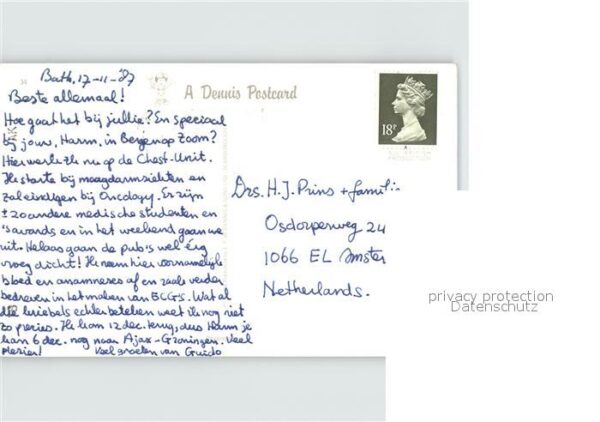 Bath, 17-11-'87
Beste allemaal!
Hoe gaat het bij jullie? En speciaal
bij jouw, Harm, in Bergen op Zoom?
Hier werk ik nu op de Chest-Unit.
Ik startte bij maagdarmziekten en
zal eindigen bij Oncology. Er zijn
± 20 andere medische studenten en
's avonds en in het weekend gaan we
uit. Helaas gaan de pub's wel erg
vroeg dicht! Ik neem hier voornamelijk
bloed en anamneses af en raak verder
bedreven in het maken van ECG's. Wat al
die kriebels echter betekenen weet ik nog niet
zo precies. Ik kom 12 dec. terug, dus Harm je
kan 6 dec. nog naar Ajax-Groningen. Veel
plezier! Veel groeten van Guido
A Dennis Postcard
18P
Drs. H.J. Prins + famili
Osdorperweg 24
1066 EL Amster
Netherlands.
privacy protection
Datenschutz